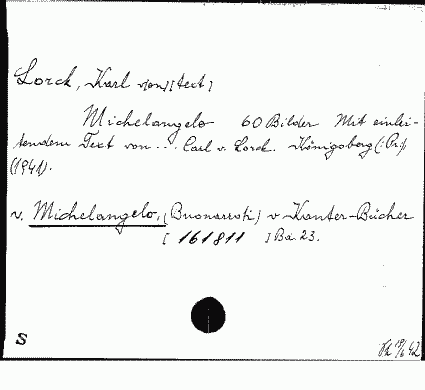 Lorck, Karl v[on] [text]
Michelangelo 60 Bilder Mit einlei-
tendem Text von ... Carl v. Lorck. Königsberg (: Pr:)
(1941).
v. Michelangelo, (Buonarroti) v Kanter-Bücher
[ 161811 ] Bd. 23.
S
42